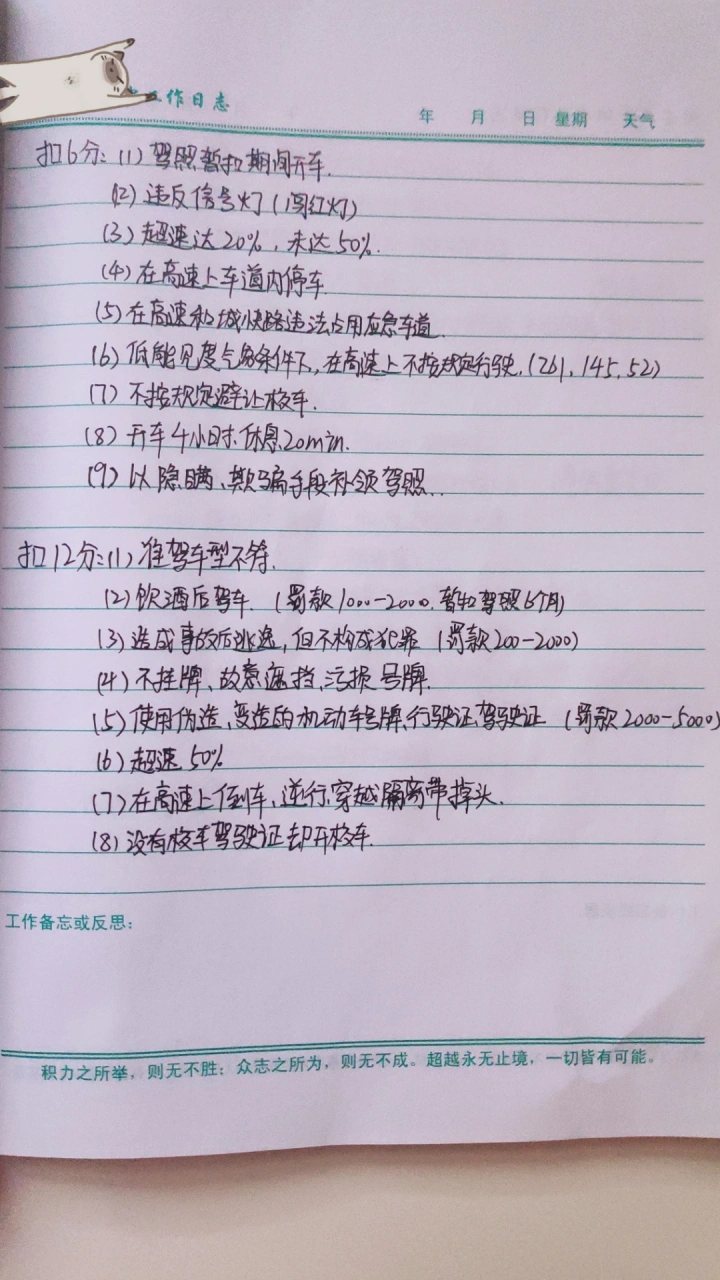 工作日志
年 月 日 星期 天气
扣6分:(1)驾照暂扣期间开车.
(2)违反信号灯(闯红灯)
(3)超速达20%,未达50%.
(4)在高速上车道内停车.
(5)在高速和城快路违法占用应急车道.
(6)低能见度气象条件下,在高速上不按规定行驶.(261.145.52)
(7)不按规定避让校车.
(8)开车4小时.休息20min.
(9)以隐瞒、欺骗手段补领驾照.
扣12分:(1)准驾车型不符.
(2)饮酒后驾车.(罚款1000-2000.暂扣驾照6个月)
(3)造成事故后逃逸,但不构成犯罪(罚款200-2000)
(4)不挂牌、故意遮挡、污损号牌.
(5)使用伪造、变造的机动车号牌、行驶证、驾驶证(罚款2000-5000)
(6)超速50%
(7)在高速上倒车、逆行、穿越隔离带掉头.
(8)没有校车驾驶证却开校车.
工作备忘或反思:
积力之所举,则无不胜;众志之所为,则无不成。超越永无止境,一切皆有可能。